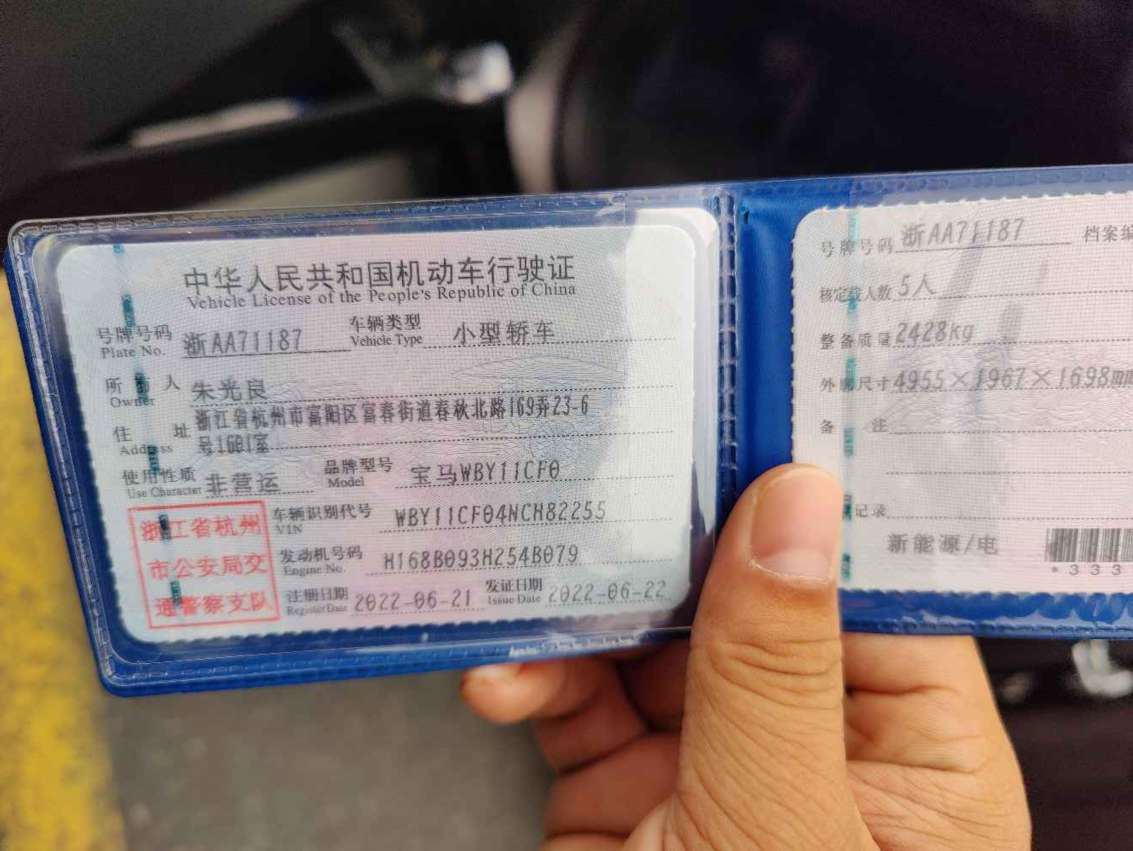 中华人民共和国机动车行驶证
Vehicle License of the People's Republic of China
号牌号码 浙AA71187 车辆类型 小型轿车
Plate No. Vehicle Type
所有人 朱光良
Owner
住址 浙江省杭州市富阳区富春街道春秋北路169弄23-6
Address 号1601室
使用性质 非营运 品牌型号 宝马WBY11CF0
Use Character Model
浙江省杭州
市公安局交
通警察支队
车辆识别代号 WBY11CF04NCH82255
VIN
发动机号码 H168B093H254B079
Engine No.
注册日期 2022-06-21 发证日期 2022-06-22
Register Date Issue Date
号牌号码 浙AA71187 档案编
核定载人数 5人
整备质量 2428kg
外廓尺寸 4955×1967×1698mm
备注
记录
新能源/电
*333